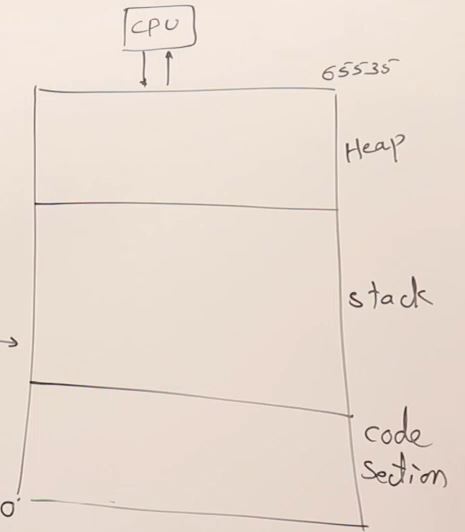 CPU
65535
Heap
stack
code
section
0